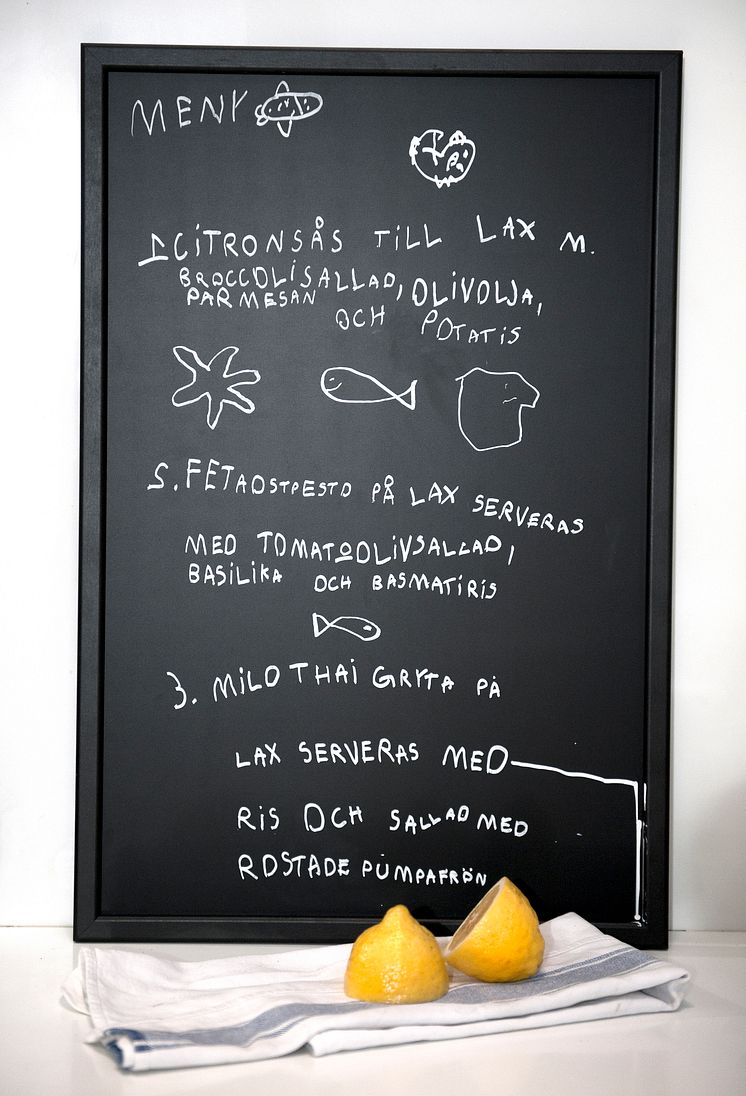 MENY
1 CITRONSÅS TILL LAX M.
BROCCOLISALLAD, OLIVOLJA,
PARMESAN
OCH POTATIS
S. FETAOSTPESTO PÅ LAX SERVERAS
MED TOMATOOLIVSALLAD,
BASILIKA OCH BASMATIRIS
3. MILD THAI GRYTA PÅ
LAX SERVERAS MED
RIS OCH SALLAD MED
ROSTADE PUMPAFRÖN